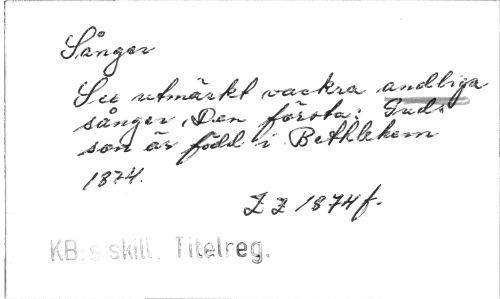 Sånger
Sex utmärkt vackra andliga
sånger. Den första: Guds
son är född i Bethlehem
1874.
Z Z 1874 f.
KB:s skill. Titelreg.